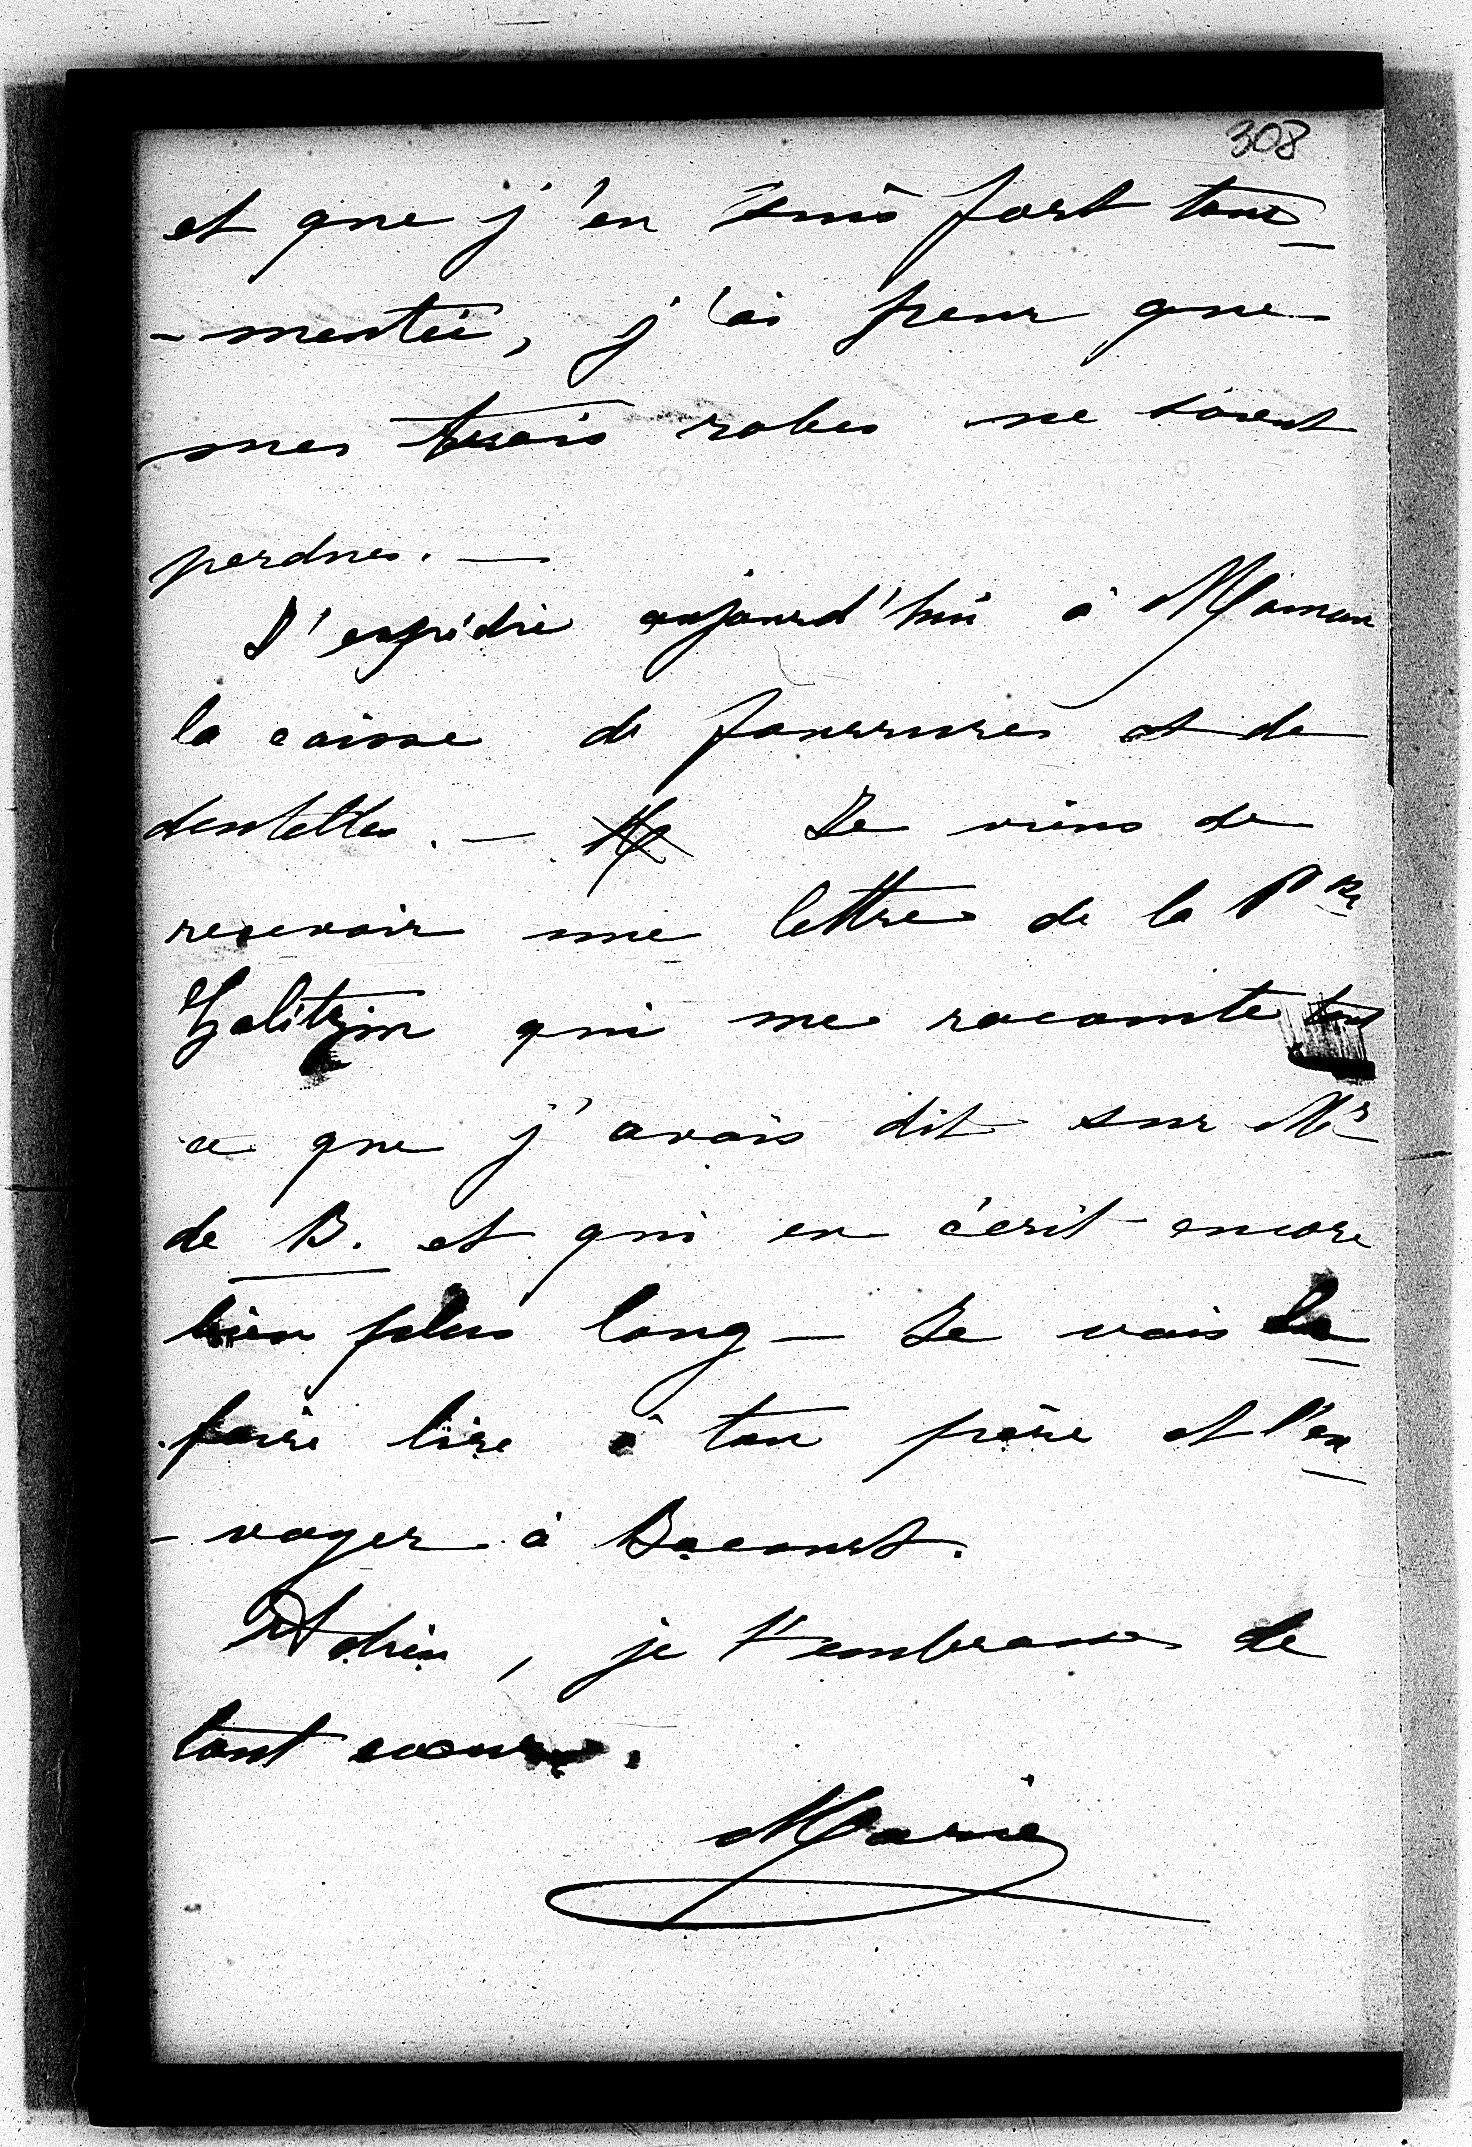 308
et que j'en suis fort tour-
-mentée, j'ai peur que
mes trois robes ne soient
perdues. —
J'expédie aujourd'hui à Maman
la caisse de fourrures et de
dentelles. — Je viens de
recevoir une lettre de la Pce
Galitzin qui me raconte tout
ce que j'avais dit sur Mr
de B. et qui en écrit encore
bien plus long — Je vais la
faire lire à ton père et l'en
-voyer à Bacourt.
Adieu, je t'embrasse de
tout coeur.
Marie